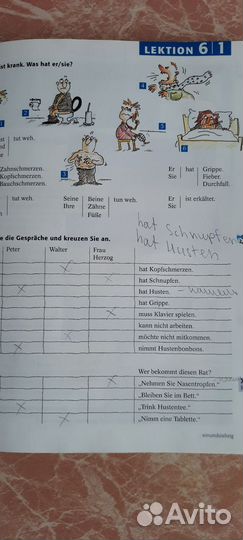 LEKTION 6 1
ist krank. Was hat er/sie?
4
2
5
6
3
tut weh.
Zahnschmerzen.
Kopfschmerzen.
Bauchschmerzen.
Er hat Grippe.
Sie Fieber.
Durchfall.
tut weh.
Seine Beine tun weh.
Ihre Zähne
Füße
Er ist erkältet.
Sie
hat Schnupfen
hat Husten
e die Gespräche und kreuzen Sie an.
Peter Walter Frau Herzog
hat Kopfschmerzen.
hat Schnupfen.
hat Husten.
hat Grippe.
muss Klavier spielen.
kann nicht arbeiten.
möchte nicht mitkommen.
nimmt Hustenbonbons.
Wer bekommt diesen Rat?
„Nehmen Sie Nasentropfen.“
„Bleiben Sie im Bett.“
„Trink Hustentee.“
„Nimm eine Tablette.“
einundsiebzig
Avito